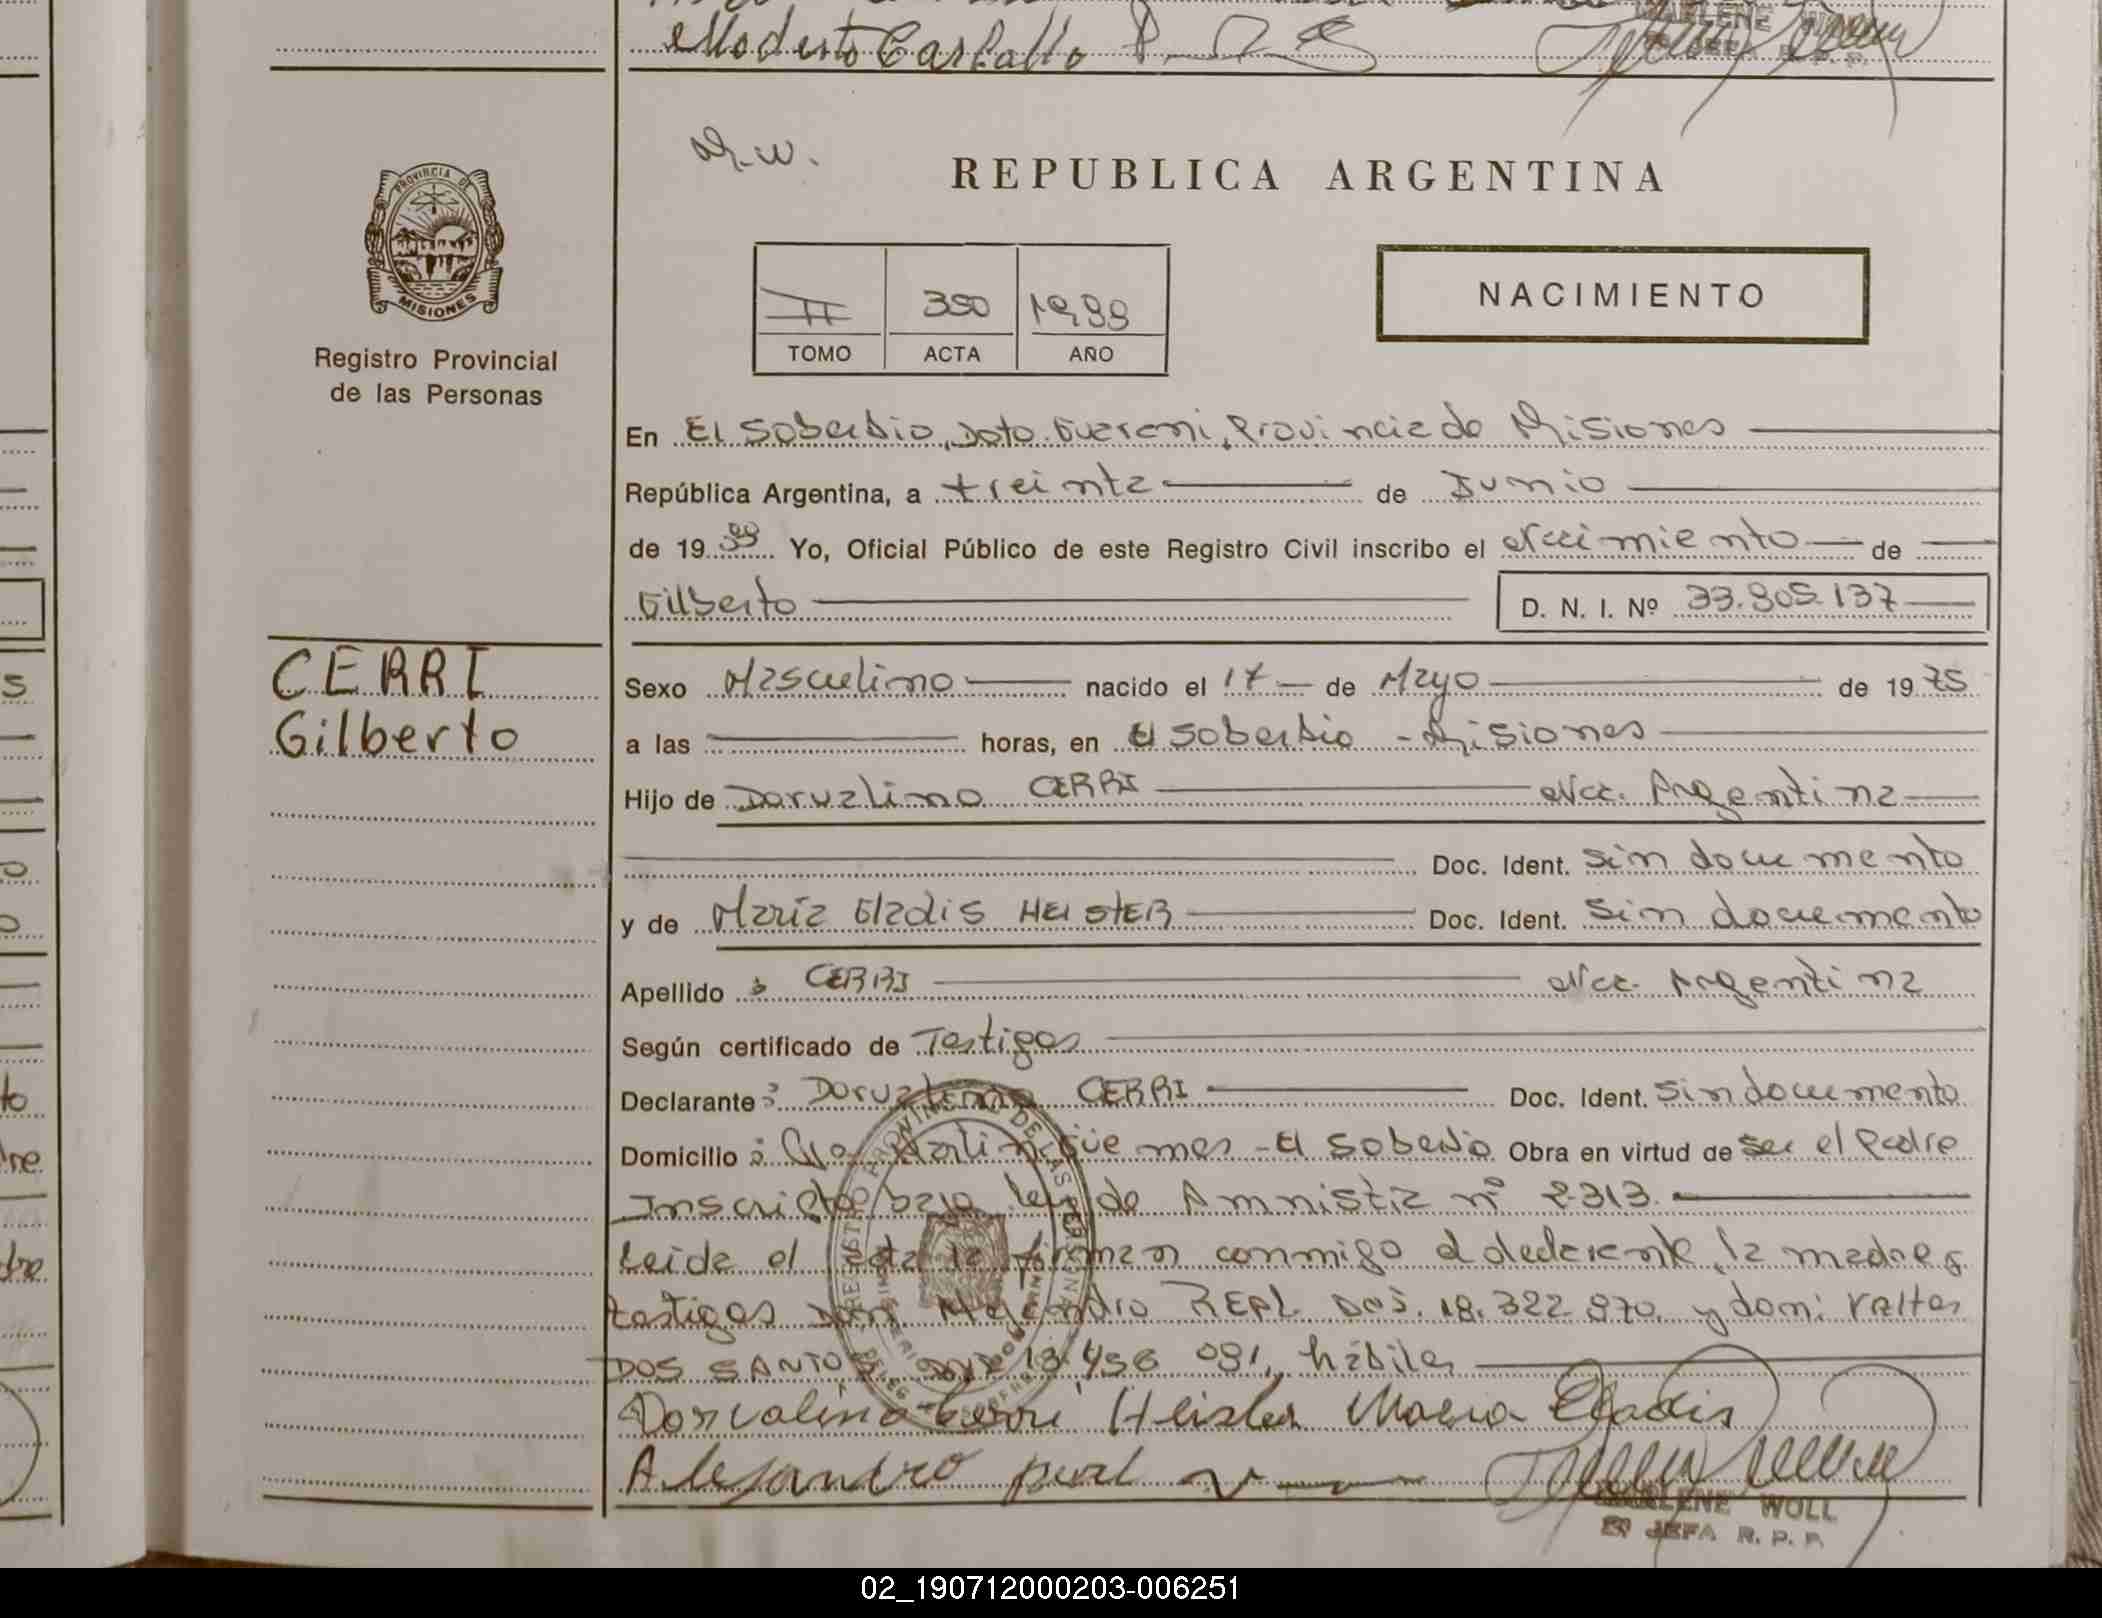 Modesto Carballo
MARLENE WOLL
JEFA R. P. P.
PROVINCIA DE
MISIONES
Registro Provincial
de las Personas
M.W.
REPUBLICA ARGENTINA
II 350 1999
TOMO ACTA AÑO
NACIMIENTO
En El Soberbio, Dpto. Guarani, Provincia de Misiones
República Argentina, a treinta de Junio
de 1999 Yo, Oficial Público de este Registro Civil inscribo el Nacimiento de
Gilberto D. N. I. Nº 33.905.137
CERRI
Gilberto
Sexo Masculino nacido el 17 de Mayo de 1975
a las horas, en El Soberbio - Misiones
Hijo de Dorvalino CERRI Nac. Argentina
Doc. Ident. Sin documento
y de María Gladis HEISTER Doc. Ident. Sin documento
Apellido : CERRI Nac. Argentina
Según certificado de Testigos
Declarante : Dorvalino CERRI Doc. Ident. Sin documento
Domicilio : Martin Güemes - El Soberbio Obra en virtud de ser el Padre
Inscripto bajo ley de Amnistia nº 2313.
Leida el acta la firman conmigo el declarante, la madre y
testigos Don Alejandro REPL DNI. 18.322.870. y don: Valter
DOS SANTOS DNI 18.456 091, hábiles
Dorvalino Cerri Heister Maria Gladis
Alejandro
MARLENE WOLL
JEFA R. P. P.
02_190712000203-006251